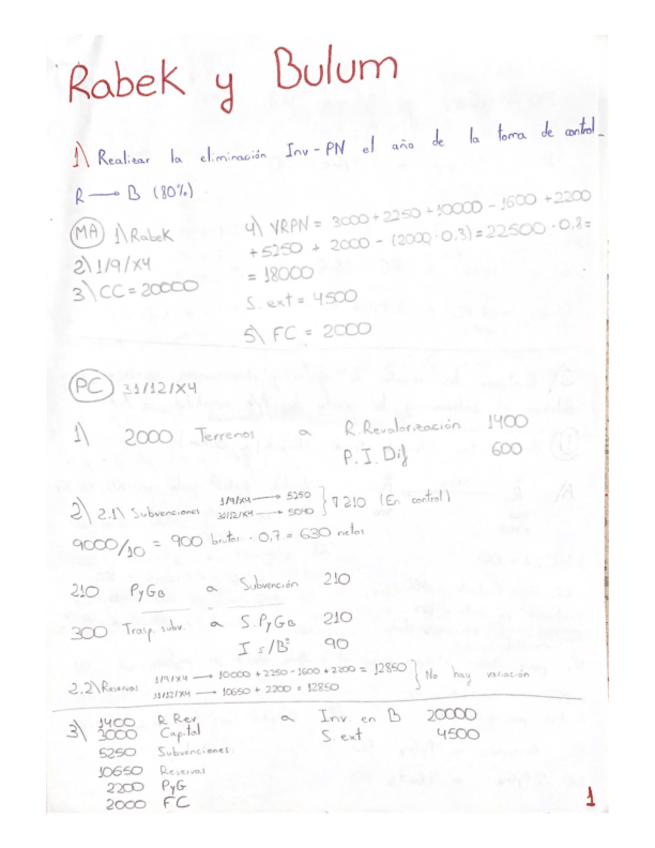 Rabek y Bulum
1) Realizar la eliminación Inv-PN el año de la toma de control.
R → B (80%)
MA 1) Rabek
2) 1/9/X4
3) CC = 20000
4) VRPN = 3000 + 2250 + 10000 - 1600 + 2200
+ 5250 + 2000 - (2000 · 0,3) = 22500 · 0,8 =
= 18000
S. ext = 4500
5) FC = 2000
PC 31/12/X4
1) 2000 Terrenos a R. Revalorización 1400
P. I. Dif 600
2) 2.1) Subvenciones 1/9/X4 → 5250
31/12/X4 → 5040 } ∇ 210 (En control)
9000/10 = 900 brutos · 0,7 = 630 netos
210 PyGB a Subvención 210
300 Trasp. subv. a S. PyGB 210
I s/Bº 90
2.2) Reservas 1/9/X4 → 10000 + 2250 - 1600 + 2200 = 12850
31/12/X4 → 10650 + 2200 = 12850 } No hay variación
3) 1400 R Rev a Inv. en B 20000
3000 Capital S. ext 4500
5250 Subvenciones
10650 Reservas
2200 PyG
2000 FC
1